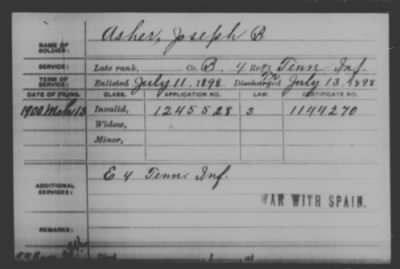 NAME OF SOLDIER: Asher, Joseph B
SERVICE: Late rank, Co. B, 4 Reg't Tenn Inf.
TERM OF SERVICE: Enlisted July 11, 1898 Discharged July 13, 1898
DATE OF FILING. CLASS. APPLICATION NO. LAW. CERTIFICATE NO.
1900 Mch 13 Invalid, 1245528 3 1144270
Widow,
Minor,
ADDITIONAL SERVICES: E 4 Tenn. Inf.
WAR WITH SPAIN.
REMARKS: